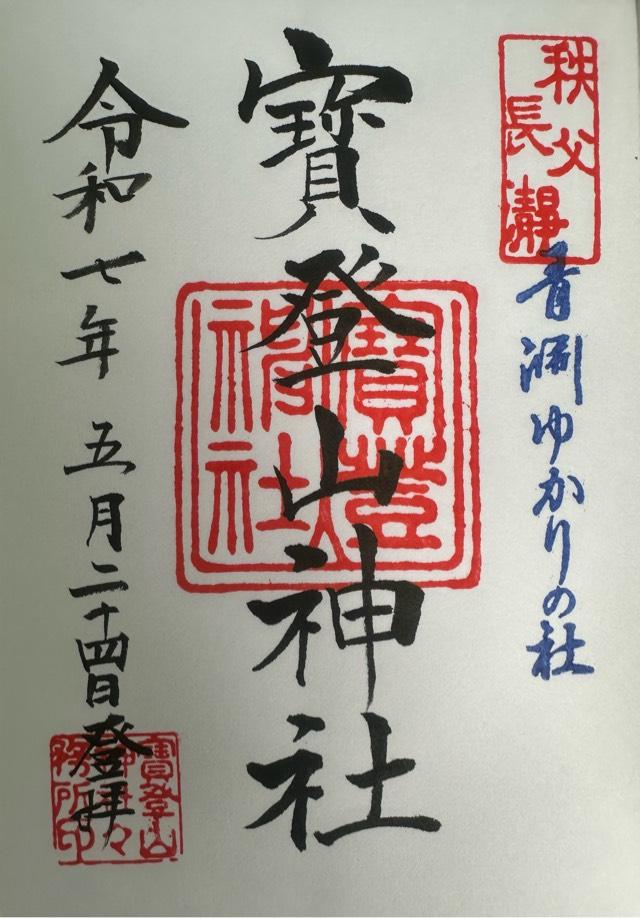 秩父
長瀞
青淵ゆかりの社
寶登山神社
寶登山
神社
令和七年 五月二十四日登拝
寶登山
神社
務所印